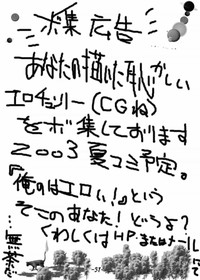 募集広告
あなたの描いた恥かしい
エロチェリー(CGね)
をボ集しております
2003夏コミ予定。
『俺のはエロい!』という
そこのあなた!どうよ?
くわしくはHP.またはメールにて
…無茶だ
-51-